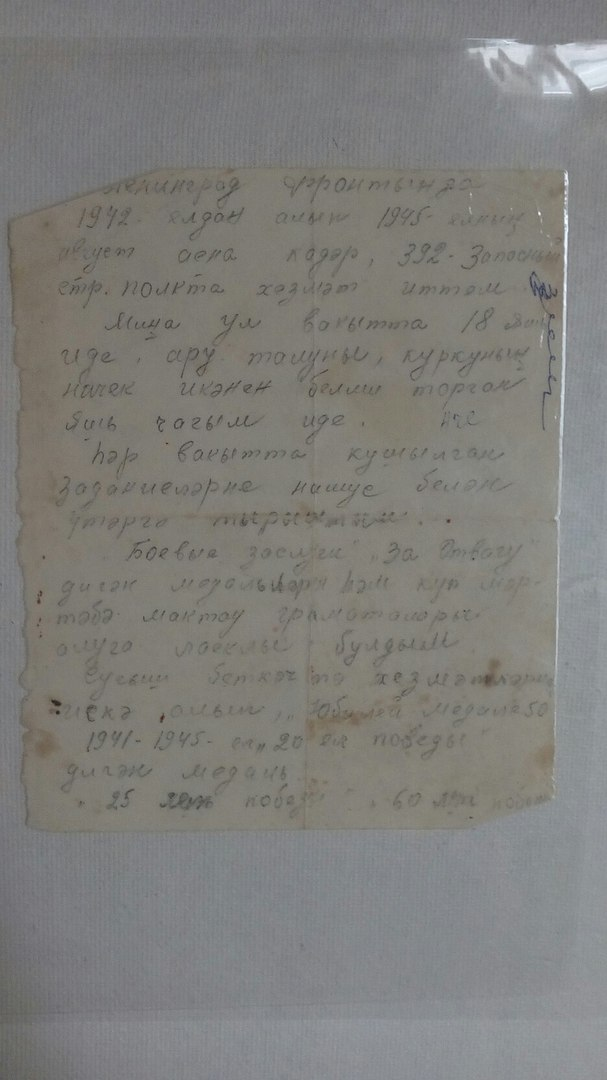 Ленинград фронтында
1942 елдан алып 1945- елның
август аена кадәр, 392- Запасный
стр. полкта хезмәт иттем
Миңа ул вакытта 18 яшь
иде. ару талуны, куркуның
ничек икәнен белми торган
яшь чагым иде.
һәр вакытта кушылган
заданиеләрне намус белән
үтәргә тырыштым.
Боевые заслуги" „За Отвагу"
дигән медальләргә һәм күп мәр-
тәбә мактау грамоталары
алуга лаеклы булдым
Сугыш беткәч тә хезмәтләрне
искә алып, „Юбилей медале 50
1941-1945- ел „20 ел победы"
дигән медаль
„25 лет победы" „60 лет